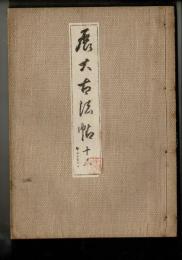 展大古法帖 十六